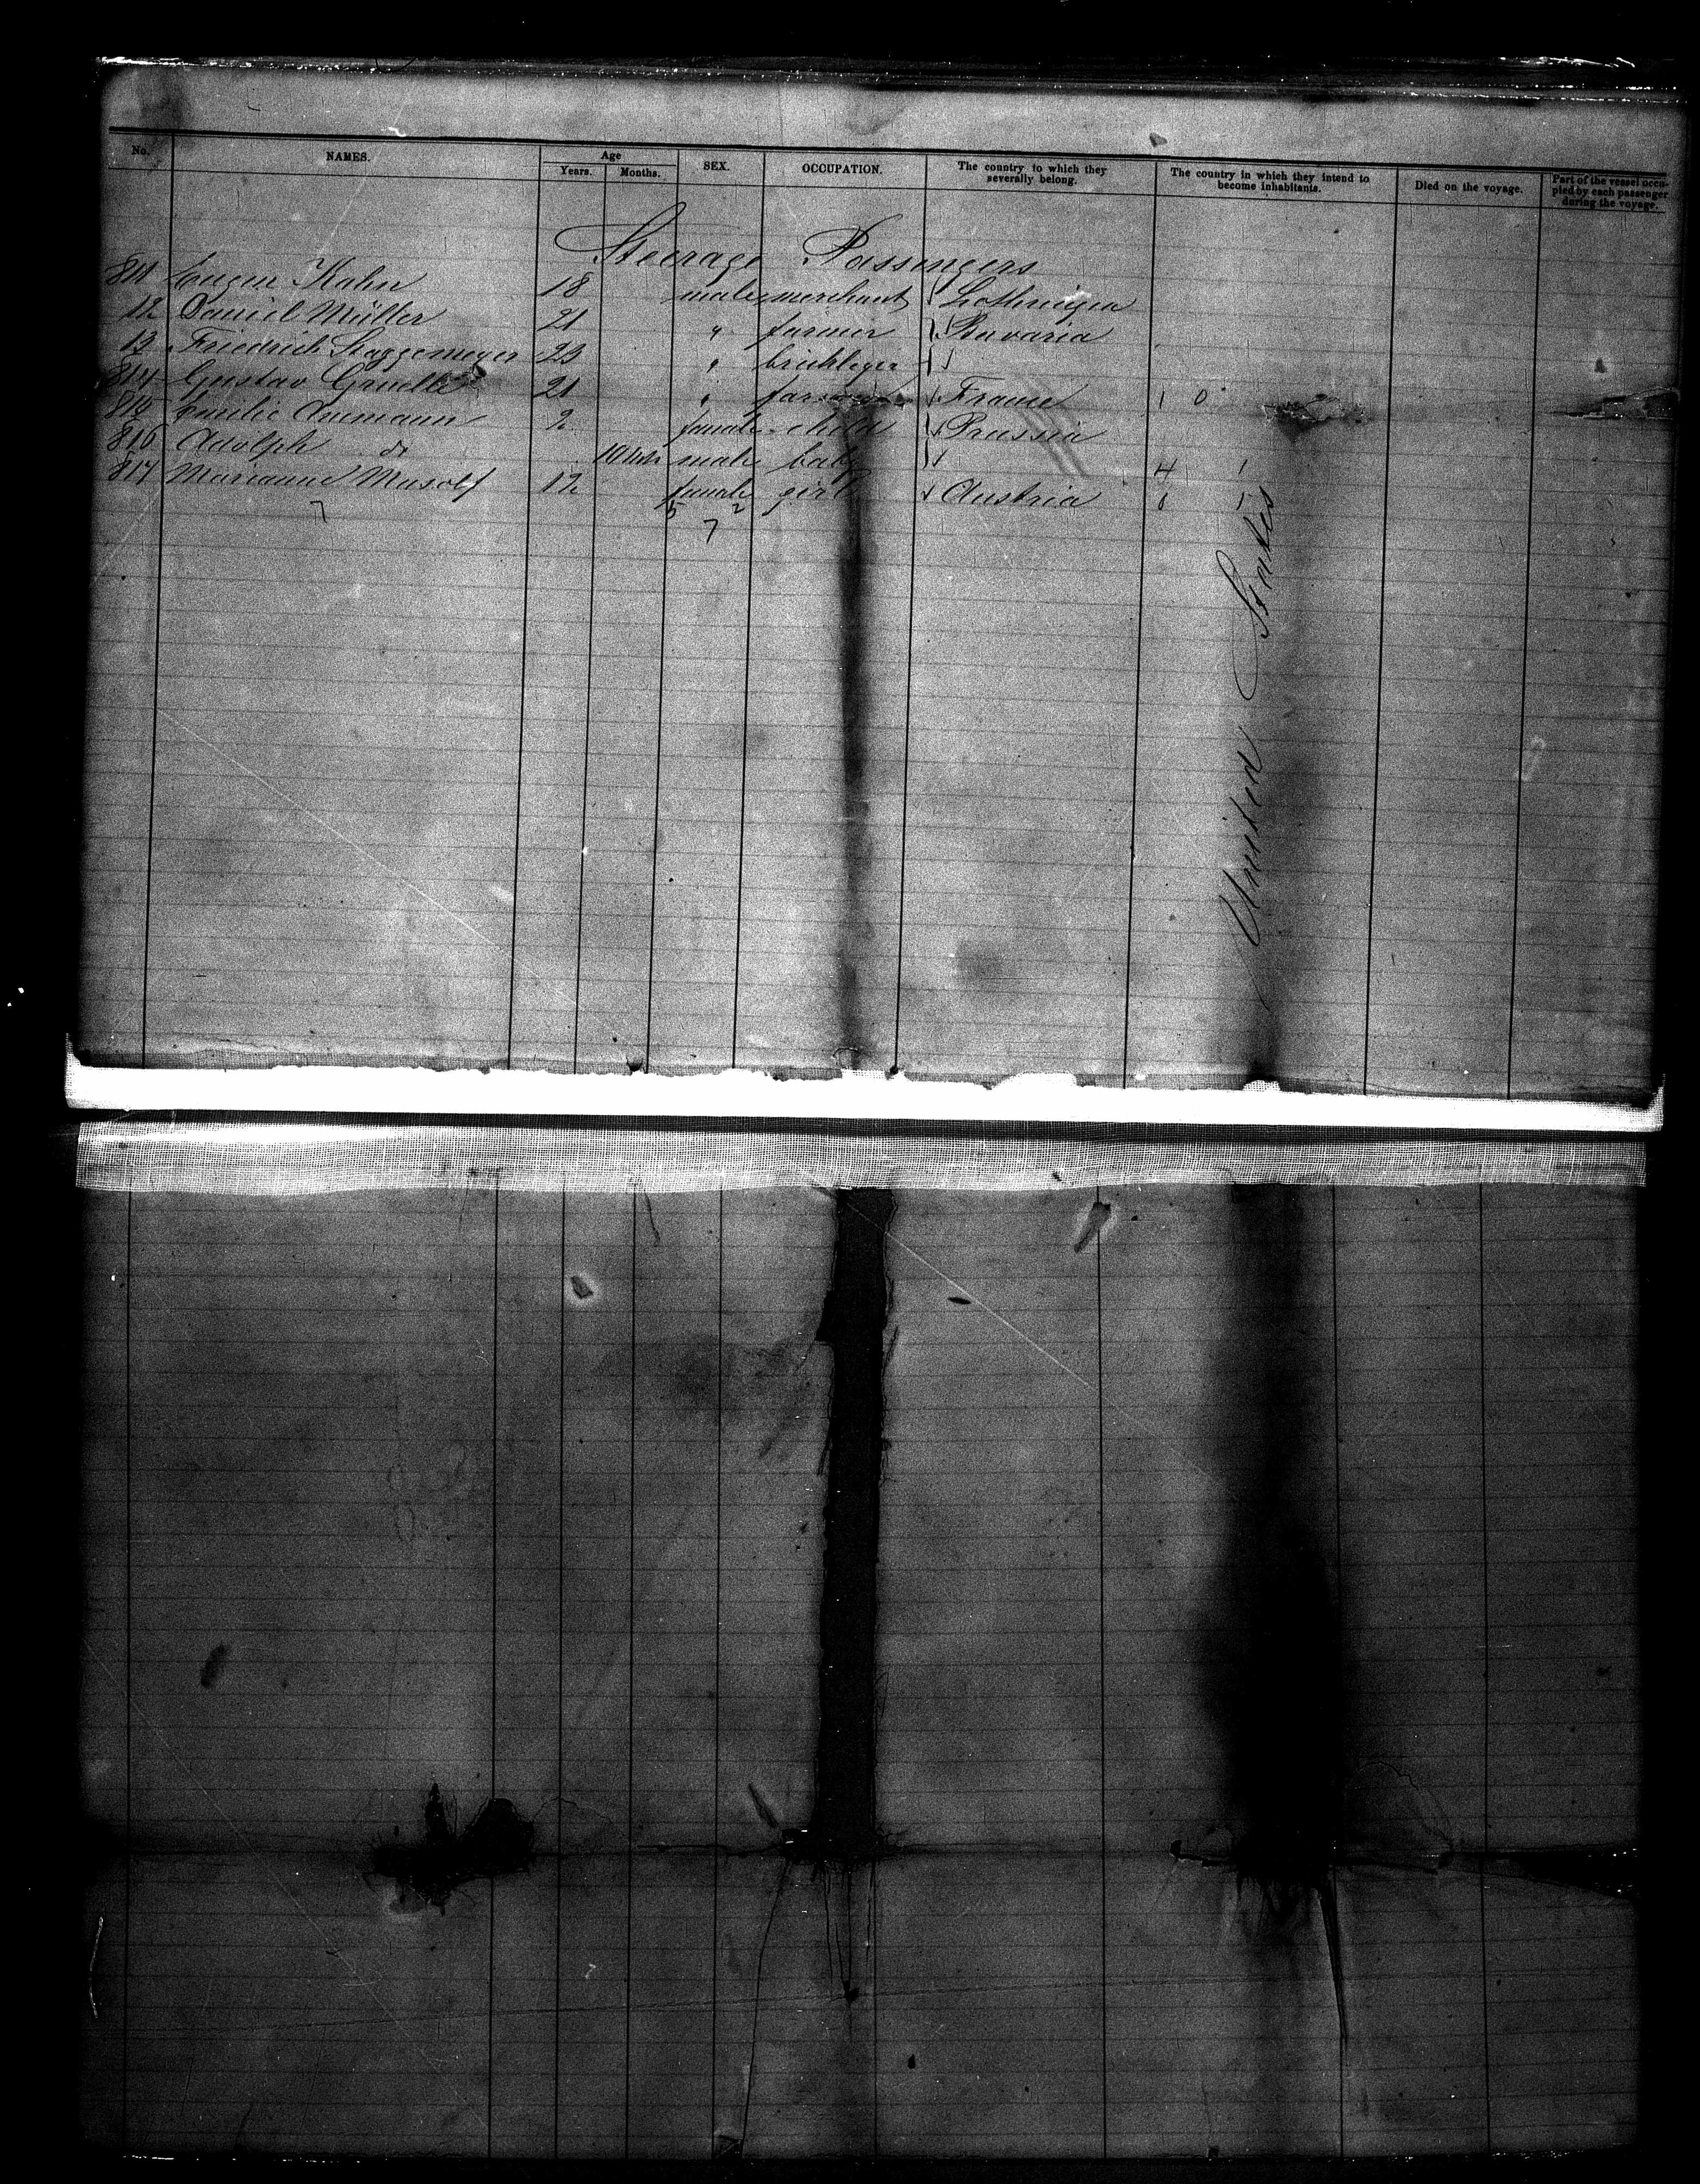 No. NAMES. Age Years. Months. SEX. OCCUPATION. The country to which they severally belong. The country in which they intend to become inhabitants. Died on the voyage. Part of the vessel occupied by each passenger during the voyage.
Steerage Passengers
811 Eugen Kahn 18 male merchant Lothringen
12 Daniel Müller 21 " farmer Bavaria
13 Friedrich Staggemeyer 23 " "
814 Gustav 21 " France 1 0
815 Emilie Aumann 2 female child Prussia
816 Adolph do 10 male baby 4 1
817 Marianne Musolf 12 female girl Austria
7 5 2
7
United States